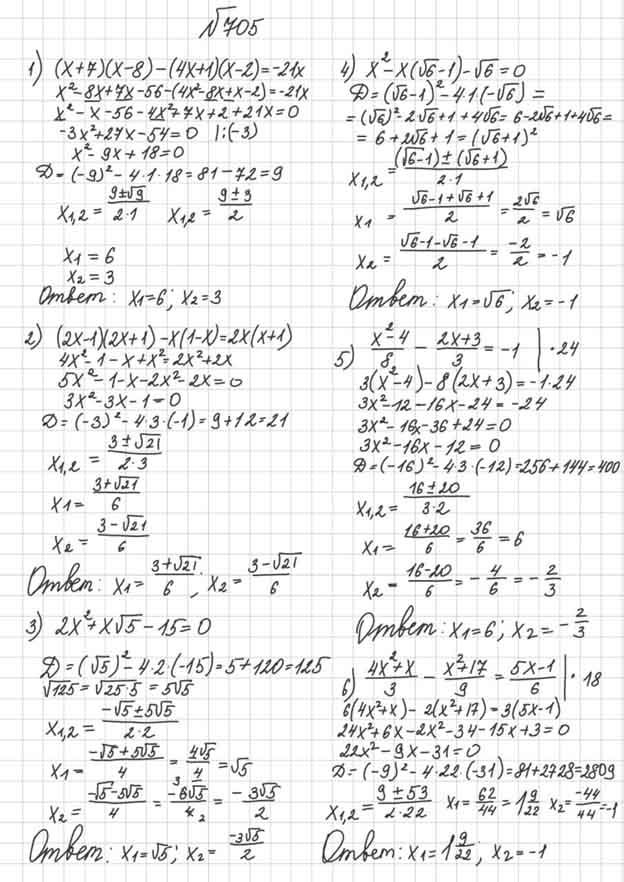 №705
1) (x+7)(x-8)-(4x+1)(x-2)=-21x
x²-8x+7x-56-(4x²-8x+x-2)=-21x
x²-x-56-4x²+7x+2+21x=0
-3x²+27x-54=0 |:(-3)
x²-9x+18=0
D=(-9)²-4·1·18=81-72=9
x1,2=(9±√9)/(2·1) x1,2=(9±3)/2
x1=6
x2=3
Ответ: x1=6; x2=3
2) (2x-1)(2x+1)-x(1-x)=2x(x+1)
4x²-1-x+x²=2x²+2x
5x²-1-x-2x²-2x=0
3x²-3x-1=0
D=(-3)²-4·3·(-1)=9+12=21
x1,2=(3±√21)/(2·3)
x1=(3+√21)/6
x2=(3-√21)/6
Ответ: x1=(3+√21)/6; x2=(3-√21)/6
3) 2x²+x√5-15=0
D=(√5)²-4·2·(-15)=5+120=125
√125=√25·5=5√5
x1,2=(-√5±5√5)/(2·2)
x1=(-√5+5√5)/4=4√5/4=√5
x2=(-√5-5√5)/4=-6√5/4=-3√5/2
Ответ: x1=√5; x2=-3√5/2
4) x²-x(√6-1)-√6=0
D=(√6-1)²-4·1·(-√6)=
=(√6)²-2√6+1+4√6=6-2√6+1+4√6=
=6+2√6+1=(√6+1)²
x1,2=((√6-1)±(√6+1))/(2·1)
x1=(√6-1+√6+1)/2=2√6/2=√6
x2=(√6-1-√6-1)/2=-2/2=-1
Ответ: x1=√6; x2=-1
5) (x²-4)/8-(2x+3)/3=-1 |·24
3(x²-4)-8(2x+3)=-1·24
3x²-12-16x-24=-24
3x²-16x-36+24=0
3x²-16x-12=0
D=(-16)²-4·3·(-12)=256+144=400
x1,2=(16±20)/(3·2)
x1=(16+20)/6=36/6=6
x2=(16-20)/6=-4/6=-2/3
Ответ: x1=6; x2=-2/3
6) (4x²+x)/3-(x²+17)/9=(5x-1)/6 |·18
6(4x²+x)-2(x²+17)=3(5x-1)
24x²+6x-2x²-34-15x+3=0
22x²-9x-31=0
D=(-9)²-4·22·(-31)=81+2728=2809
x1,2=(9±53)/(2·22) x1=62/44=1 9/22 x2=-44/44=-1
Ответ: x1=1 9/22; x2=-1